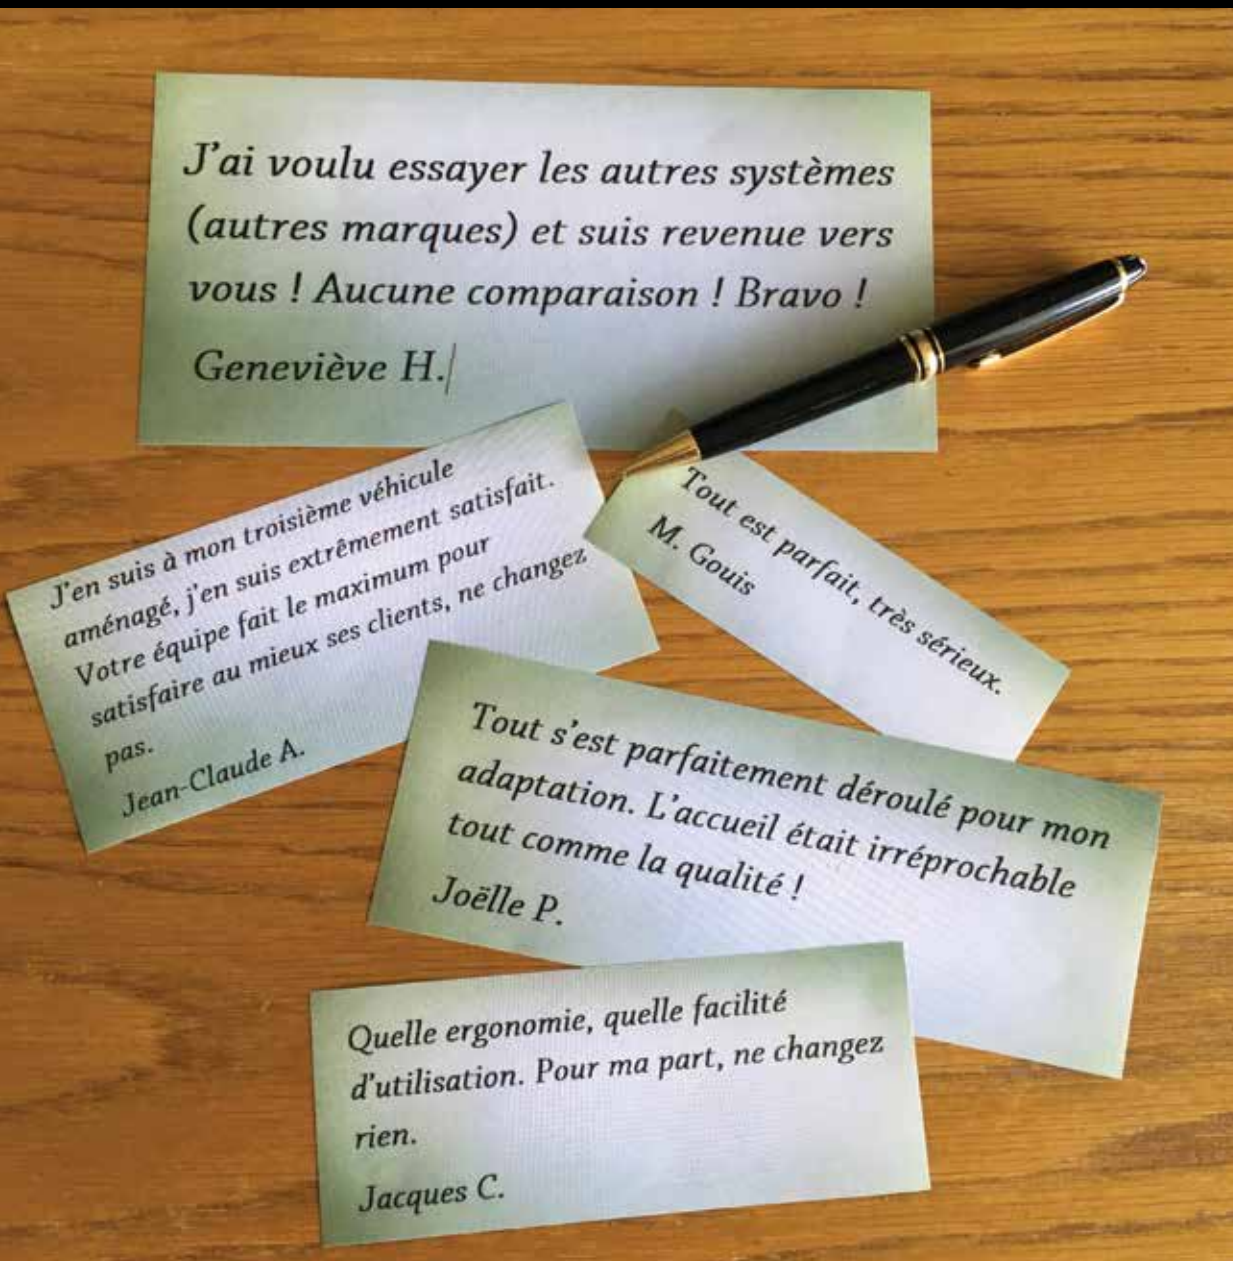 J'ai voulu essayer les autres systèmes
(autres marques) et suis revenue vers
vous ! Aucune comparaison ! Bravo !
Geneviève H.
J'en suis à mon troisième véhicule
aménagé, j'en suis extrêmement satisfait.
Votre équipe fait le maximum pour
satisfaire au mieux ses clients, ne changez
pas.
Jean-Claude A.
Tout est parfait, très sérieux.
M. Gouis
Tout s'est parfaitement déroulé pour mon
adaptation. L'accueil était irréprochable
tout comme la qualité !
Joëlle P.
Quelle ergonomie, quelle facilité
d'utilisation. Pour ma part, ne changez
rien.
Jacques C.